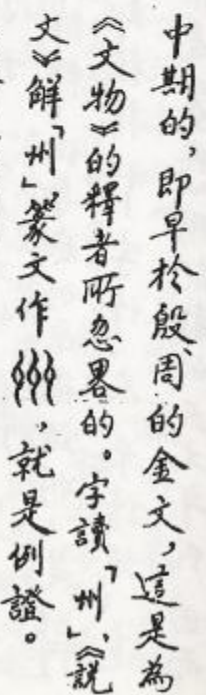 中期的，即早於殷、周的金文，這是為
《文物》的釋者所忽畧的。字讀「州」、《說
文》解「州」篆文作，就是例證。